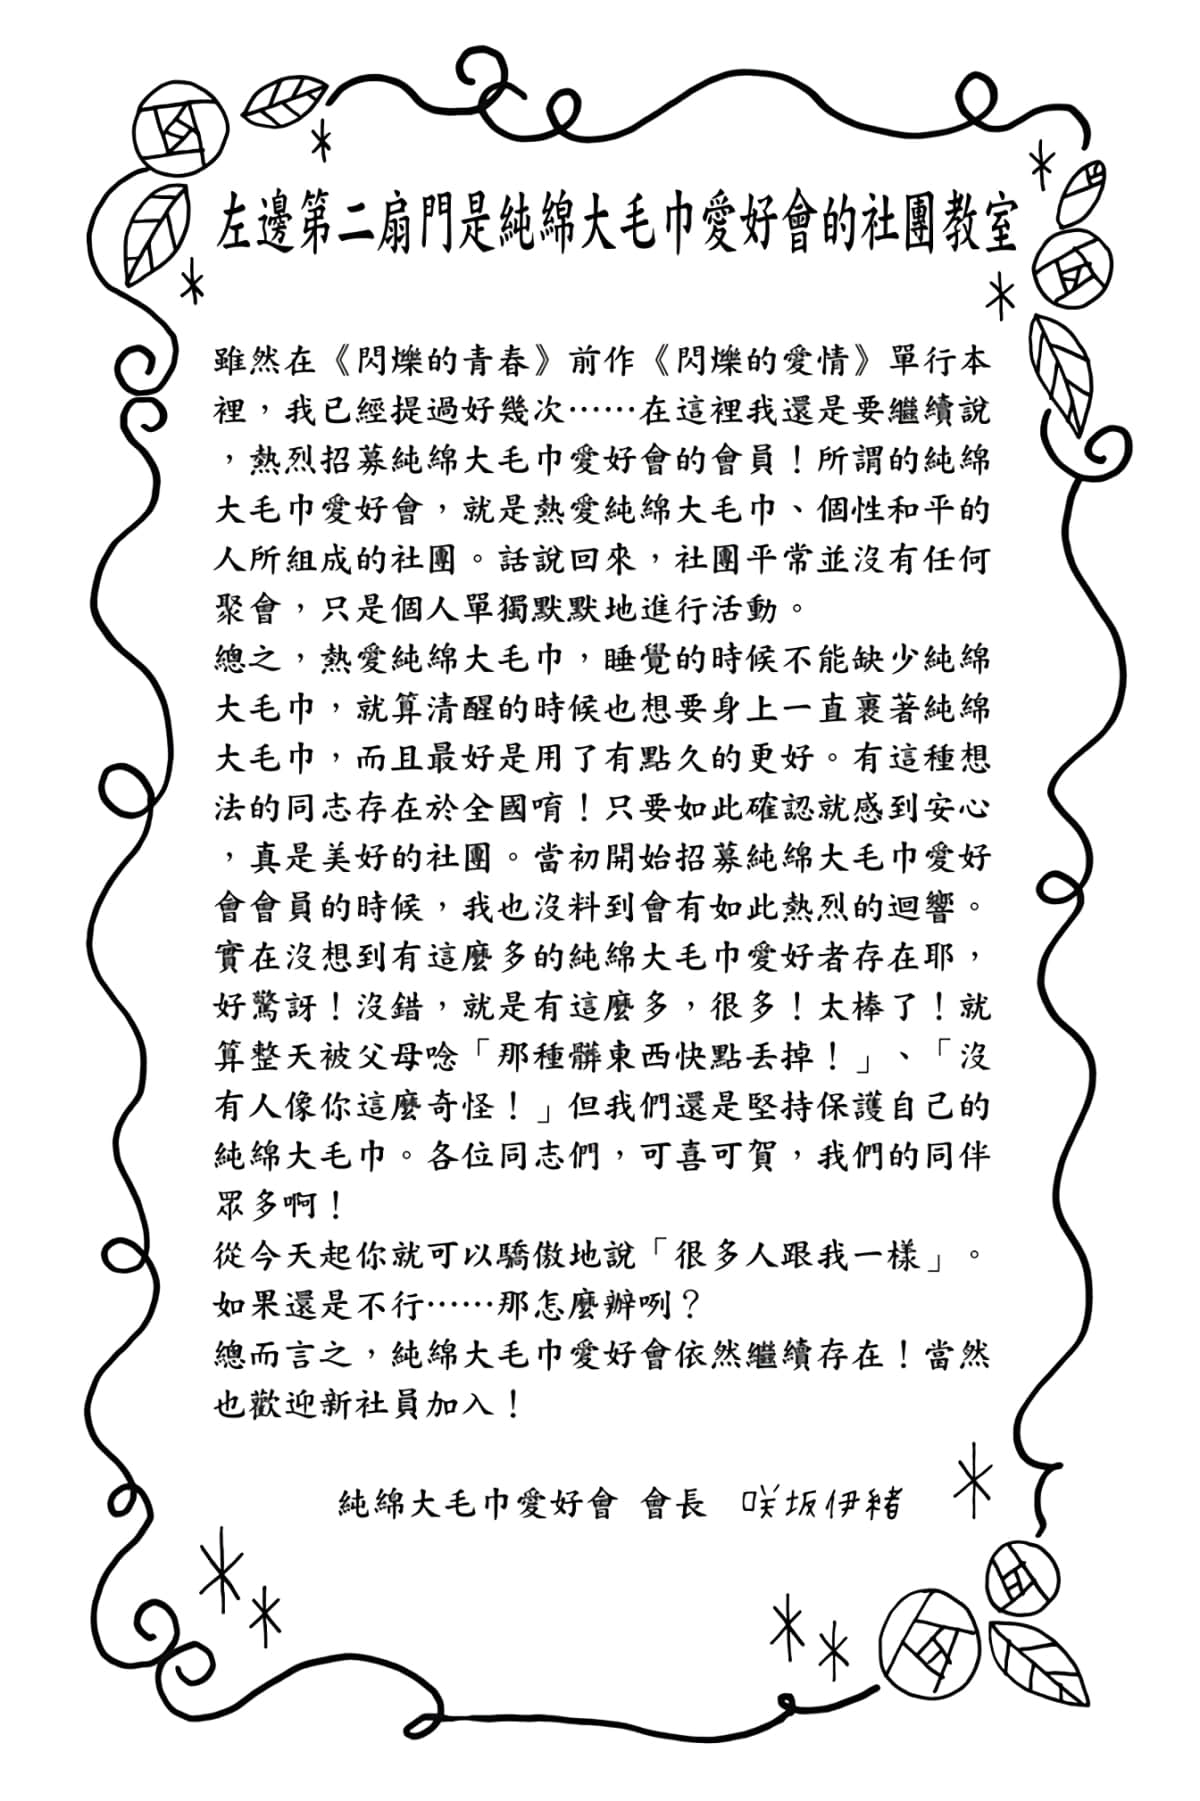 左邊第二扇門是純綿大毛巾愛好會的社團教室
雖然在《閃爍的青春》前作《閃爍的愛情》單行本
裡，我已經提過好幾次……在這裡我還是要繼續說
，熱烈招募純綿大毛巾愛好會的會員！所謂的純綿
大毛巾愛好會，就是熱愛純綿大毛巾、個性和平的
人所組成的社團。話說回來，社團平常並沒有任何
聚會，只是個人單獨默默地進行活動。
總之，熱愛純綿大毛巾，睡覺的時候不能缺少純綿
大毛巾，就算清醒的時候也想要身上一直裹著純綿
大毛巾，而且最好是用了有點久的更好。有這種想
法的同志存在於全國唷！只要如此確認就感到安心
，真是美好的社團。當初開始招募純綿大毛巾愛好
會會員的時候，我也沒料到會有如此熱烈的迴響。
實在沒想到有這麼多的純綿大毛巾愛好者存在耶，
好驚訝！沒錯，就是有這麼多，很多！太棒了！就
算整天被父母唸「那種髒東西快點丟掉！」、「沒
有人像你這麼奇怪！」但我們還是堅持保護自己的
純綿大毛巾。各位同志們，可喜可賀，我們的同伴
眾多啊！
從今天起你就可以驕傲地說「很多人跟我一樣」。
如果還是不行……那怎麼辦咧？
總而言之，純綿大毛巾愛好會依然繼續存在！當然
也歡迎新社員加入！
純綿大毛巾愛好會 會長 咲坂伊緒